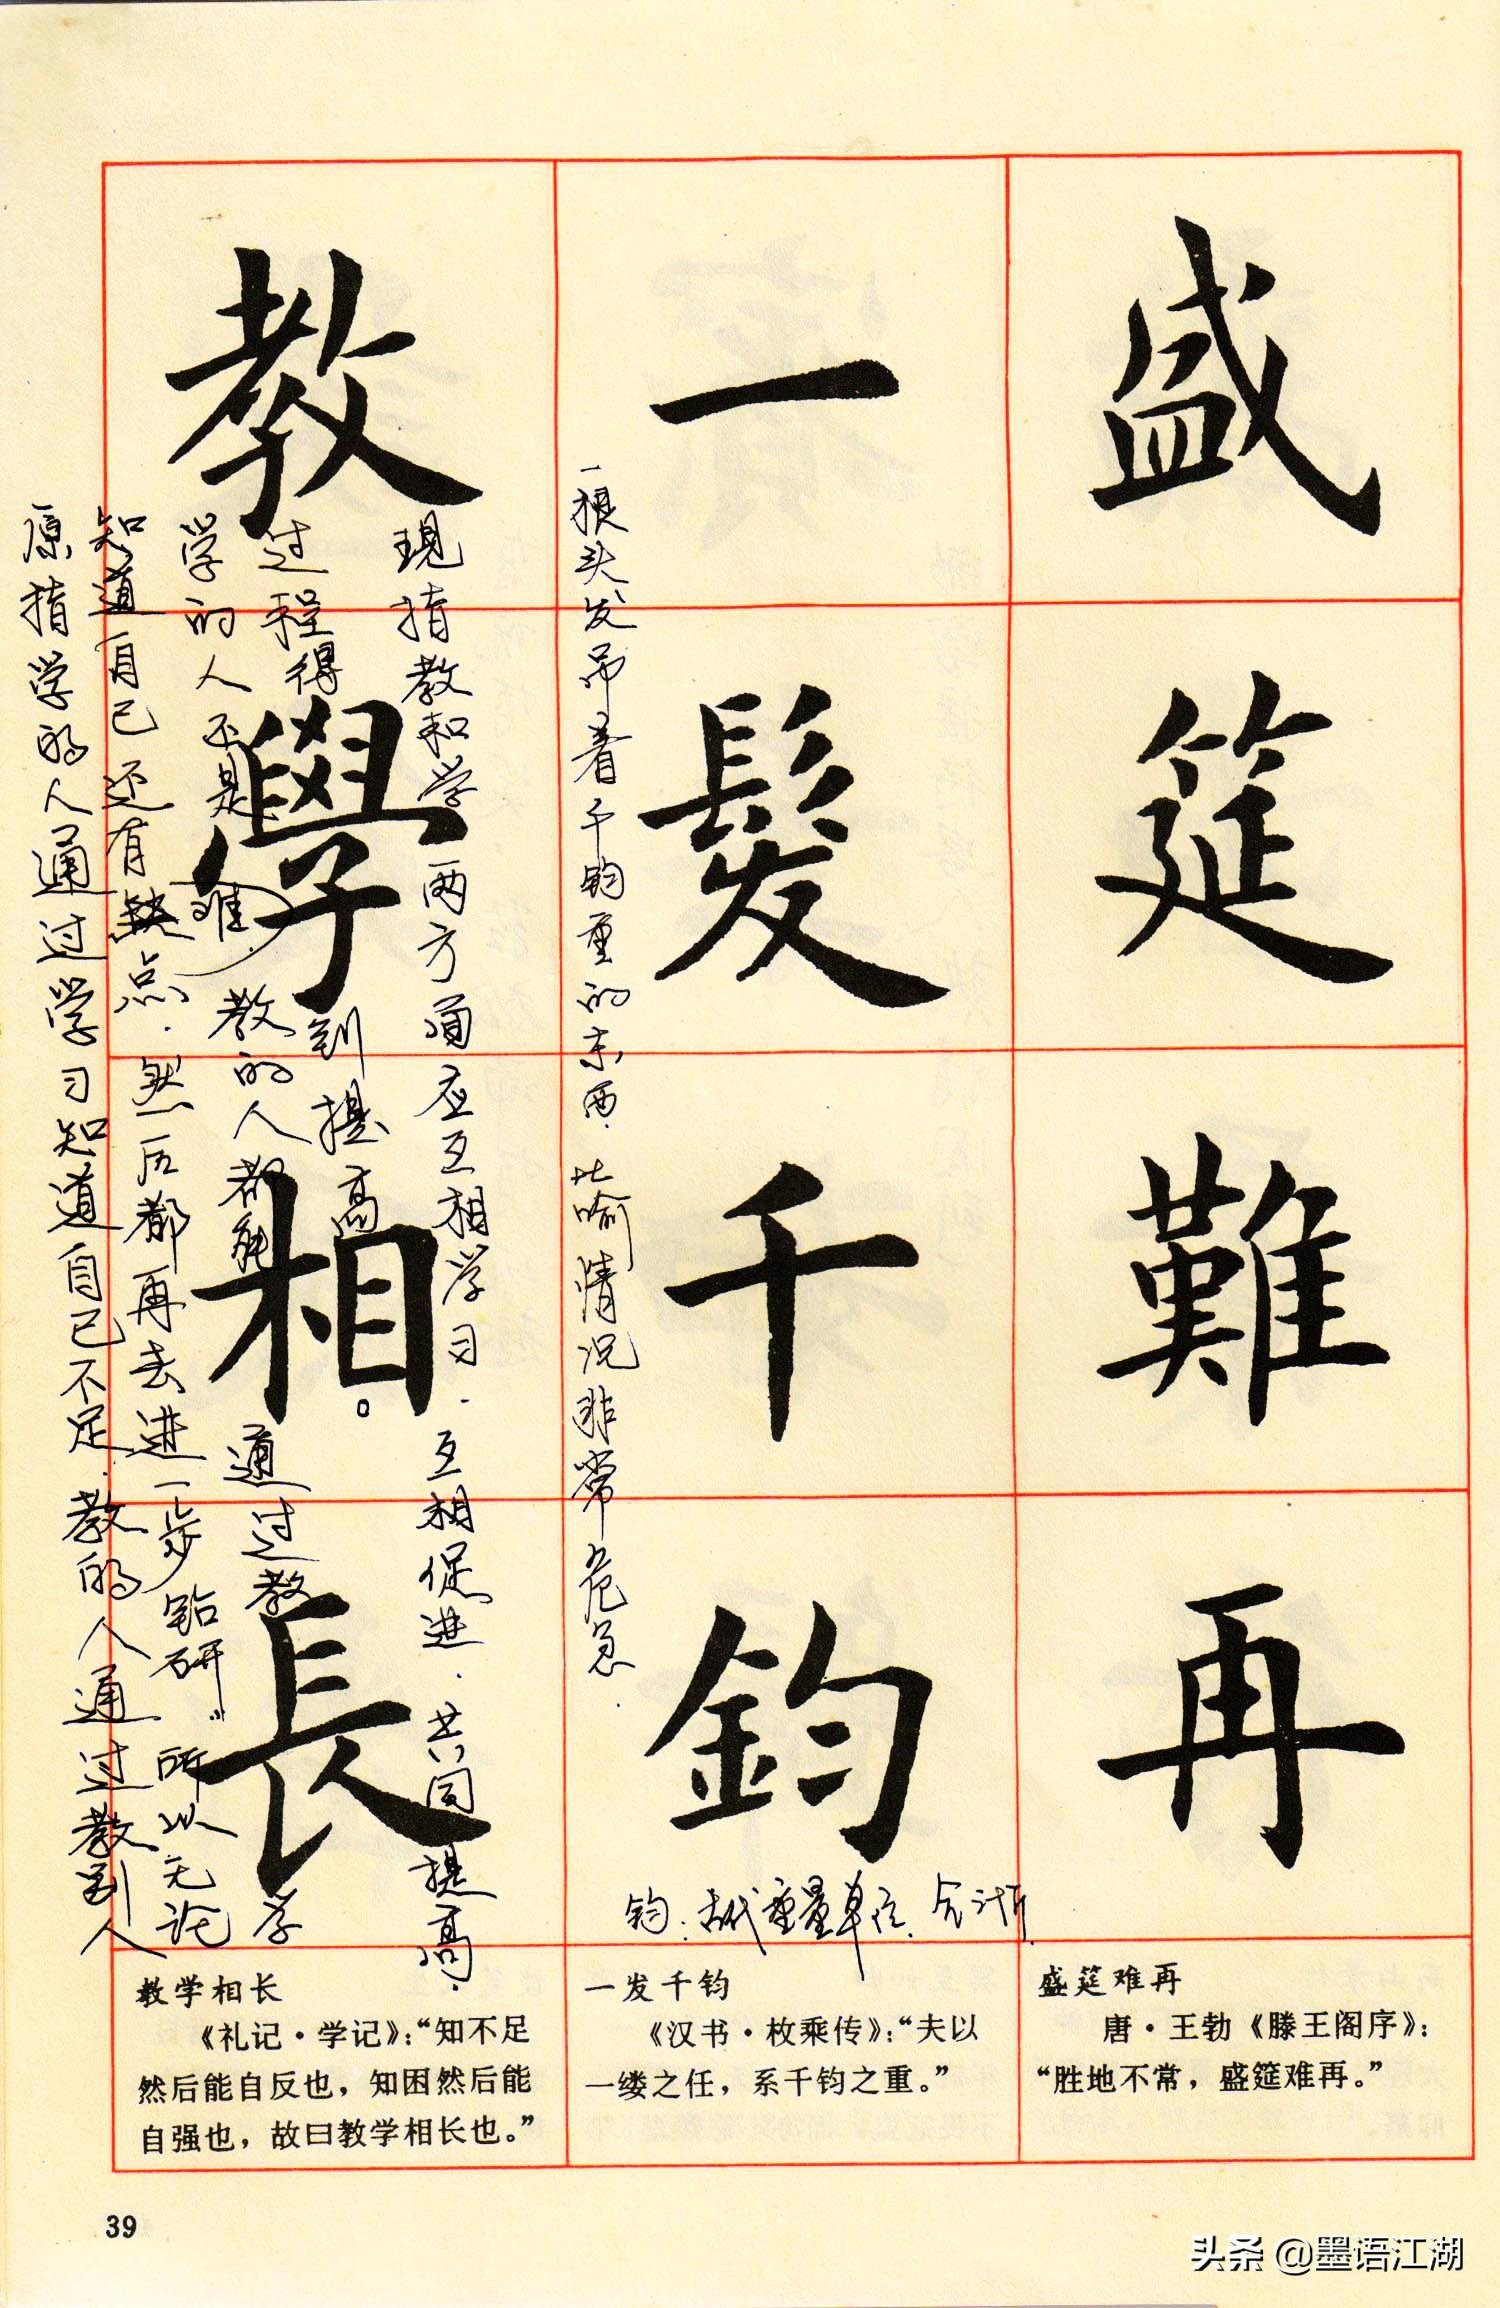 盛筵難再
一髮千鈞
教學相長
一根头发吊着千钧重的东西.比喻情况非常危急.
钧.古代重量单位.合三十斤
现指教和学两方面应互相学习.互相促进.共同提高.
过程得到提高。
学的人还是
教的人都能
通过教
学
知道自己还有缺点.然后都再去进一步钻研。所以无论
原指学的人通过学习知道自己不足.教的人通过教别人
盛筵难再
唐·王勃《滕王阁序》:
“胜地不常，盛筵难再。”
一发千钧
《汉书·枚乘传》:“夫以
一缕之任，系千钧之重。”
教学相长
《礼记·学记》:“知不足
然后能自反也，知困然后能
自强也，故曰教学相长也。”
39
头条 @墨语江湖